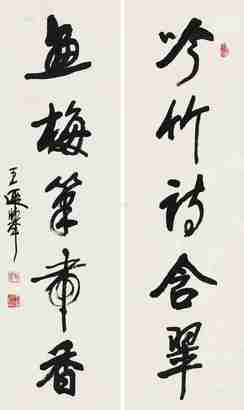 吟竹詩含翠
画梅筆带香
王遐舉